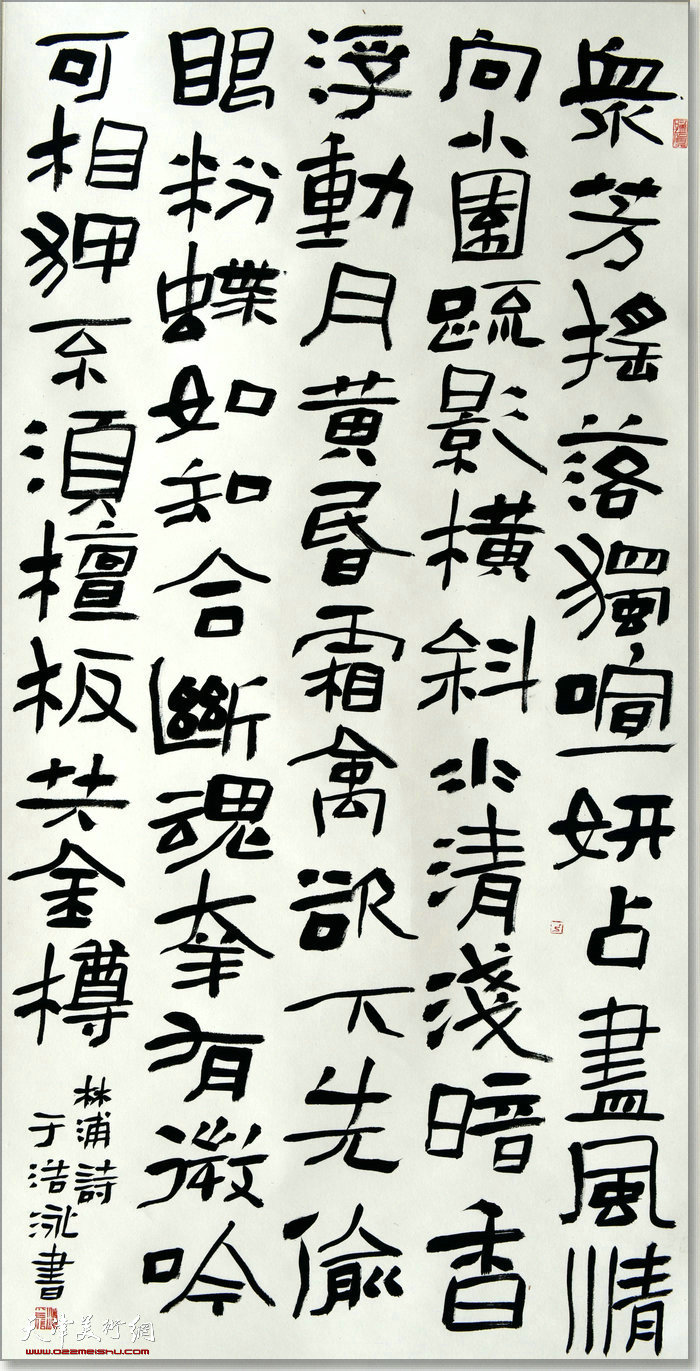 衆芳搖落獨喧妍占盡風情
向小園疏影橫斜水清淺暗香
浮動月黃昏霜禽欲下先偷
眼粉蝶如知合斷魂幸有微吟
可相狎不須檀板共金樽
林浦詩
于浩泳書
天津美術網
www.022meishu.com